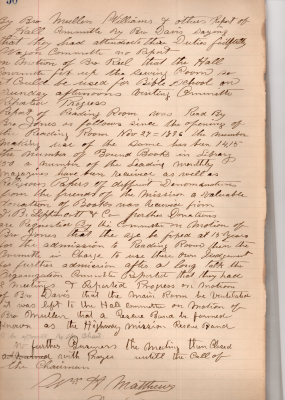 by Bro Mullen Williams & others Report of
Hall Committee by Bro Davis saying
that they had attended to there Duties faithfully
Committee no Report
on Motion of Bro Kiel that the Hall
Committe fit up the Sewing Room so
be used for Bible School on
Sunday afternoons Visiting Committe
Reported Progress
Report of Reading Room was Read By
Bro Jones as follows since the opening of
the Reading Room Nov 27 - 1896 the number
Making use of the Same has been 1415
the Number of Bound Books in Library
a number of the Leading Monthly
Magazines have been received as well as
Religious Papers of different Denominations
from the friends of the Mission a valuable
donation of Books was Received from
J.B. Lippincott & Co further Donations
are Requested By the Committe on Motion of
Bro Jones that the age be fixed at years
for the admission to Reading Room then the
Committe in Charge to use there own Judgement
admission after a long talk the
Organization Committe Reported that they had
Meetings & Reported Progress on Motion
of Bro Davis that the Main Room be Ventilated
it was left to the Hall Committe on Motion of
Bro Mullen that a Rescue Band be formed
known as the Highway Mission Rescue Band
no further Business the Meeting then Closed
with Prayer untill the Call of
the Chairman
Wm H Matthews